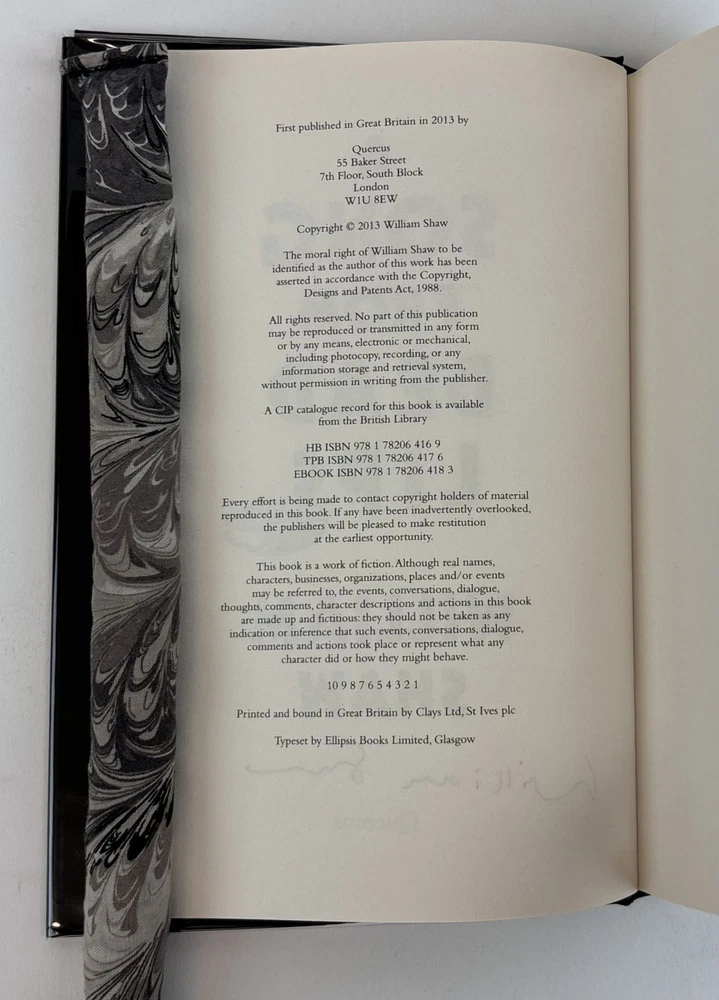 First published in Great Britain in 2013 by
Quercus
55 Baker Street
7th Floor, South Block
London
W1U 8EW
Copyright © 2013 William Shaw
The moral right of William Shaw to be
identified as the author of this work has been
asserted in accordance with the Copyright,
Designs and Patents Act, 1988.
All rights reserved. No part of this publication
may be reproduced or transmitted in any form
or by any means, electronic or mechanical,
including photocopy, recording, or any
information storage and retrieval system,
without permission in writing from the publisher.
A CIP catalogue record for this book is available
from the British Library
HB ISBN 978 1 78206 416 9
TPB ISBN 978 1 78206 417 6
EBOOK ISBN 978 1 78206 418 3
Every effort is being made to contact copyright holders of material
reproduced in this book. If any have been inadvertently overlooked,
the publishers will be pleased to make restitution
at the earliest opportunity.
This book is a work of fiction. Although real names,
characters, businesses, organizations, places and/or events
may be referred to, the events, conversations, dialogue,
thoughts, comments, character descriptions and actions in this book
are made up and fictitious: they should not be taken as any
indication or inference that such events, conversations, dialogue,
comments and actions took place or represent what any
character did or how they might behave.
10 9 8 7 6 5 4 3 2 1
Printed and bound in Great Britain by Clays Ltd, St Ives plc
Typeset by Ellipsis Books Limited, Glasgow